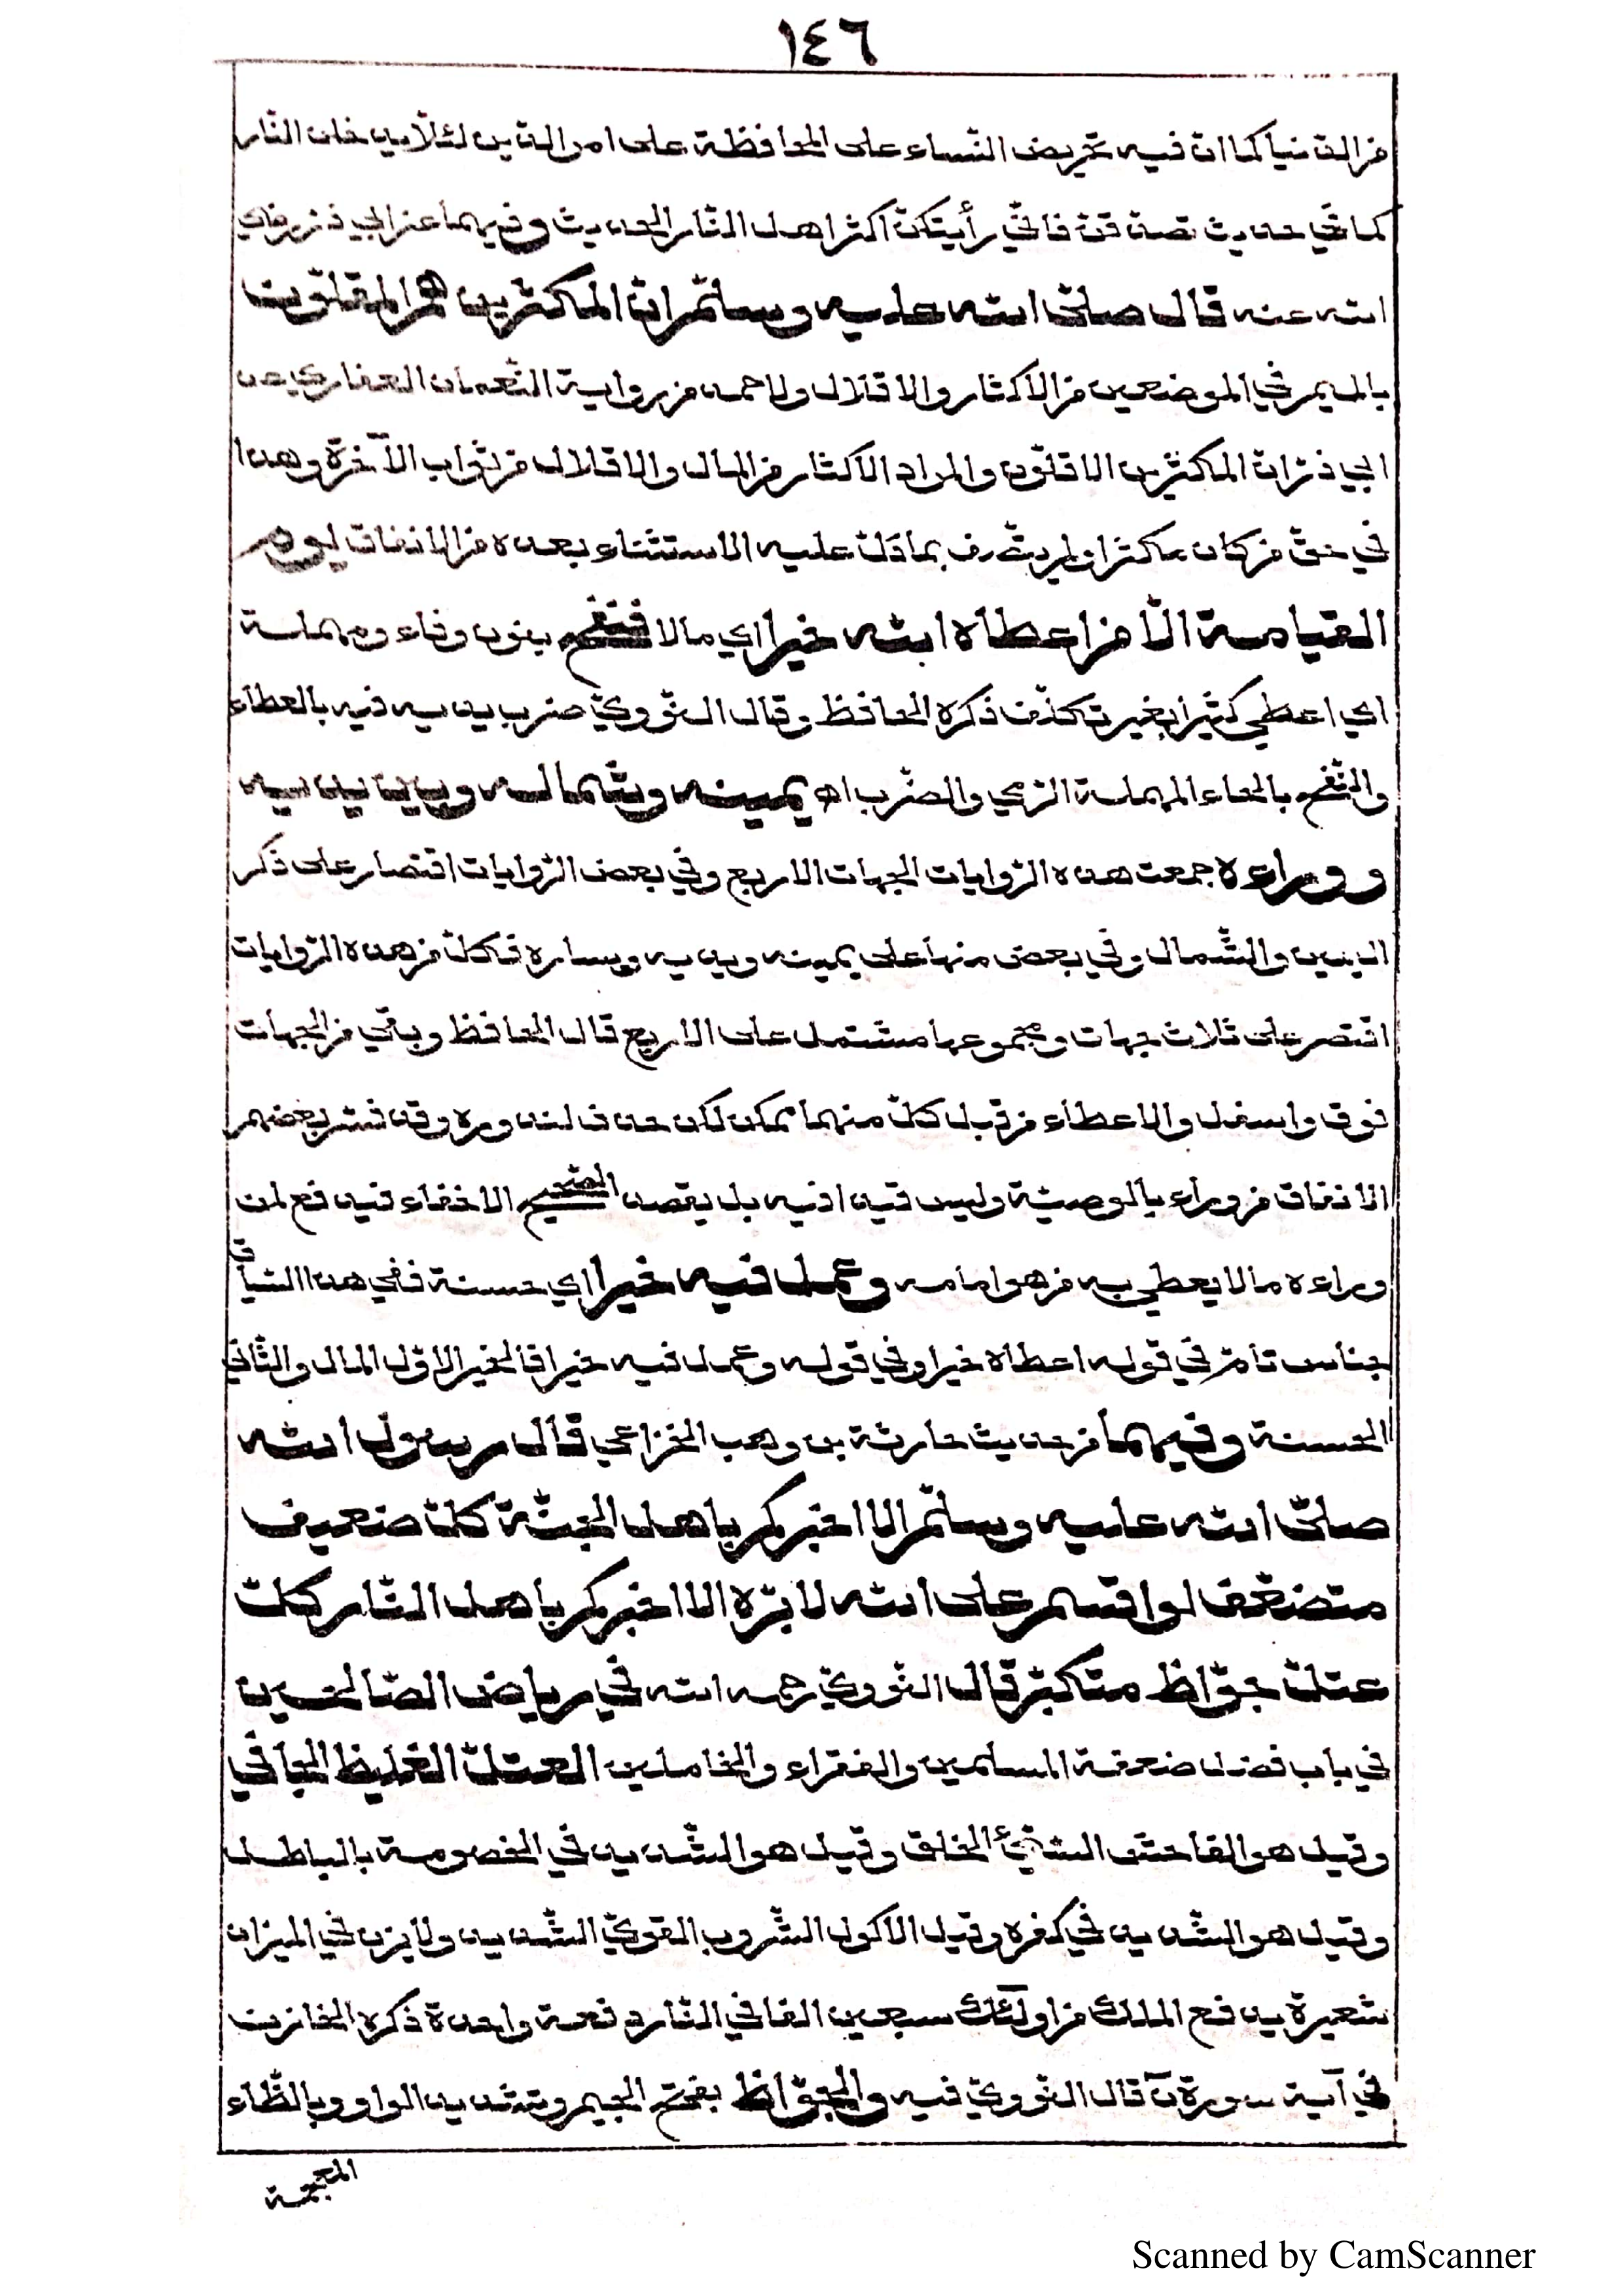 ١٤٦
من الدنيا كما ان فيه تحريض النّساء على المحافظة على امر الدّين لئلّا يدخلن النّار
كما في حديث تصدّقن فانّي رأيتكنّ اكثر اهل النّار الحديث وفيهما عن ابي ذر رضي
الله عنه قال صلّى الله عليه وسلّم انّ المكثرين هم المقلّون
بالميم في الموضعين من الاكثار والاقلال ولاحمد من رواية النّعمان الغفاري عن
ابي ذرّ انّ المكثرين الاقلّون والمراد الاكثار من المال والاقلال من ثواب الآخرة وهذا
في حقّ من كان مكثرا ولم يتّصف بما دلّ عليه الاستثناء بعده من الانفاق يوم
القيامة الّا من اعطاه الله خيرا اي مالا فنفح بنون وفاء ومهملة
اي اعطي كثيرا بغير تكلّف ذكره الحافظ وقال النّووي ضرب يديه فيه بالعطاء
والنّفح بالحاء المهملة الرّمي والضّرب اه يمينه وشماله وبين يديه
ووراءه جمعت هذه الرّوايات الجهات الاربع وفي بعض الرّوايات اقتصار على ذكر
اليمين والشّمال وفي بعض منها على يمينه ويديه ويساره فكلّ من هذه الرّوايات
اقتصر على ثلاث جهات ومجموعها مشتمل على الاربع قال الحافظ وبقي من الجهات
فوق واسفل والاعطاء من قبل كلّ منهما ممكن لكن حذف لندوره وقد فسّر بعضهم
الانفاق من وراء بالوصيّة وليس قيدا فيه بل يقصد الصّحيح الاخفاء فيدفع لمن
وراءه مالا يعطي به من هو امامه وعمل فيه خيرا اي حسنة ففي هذا السّياق
جناس تامّ في قوله اعطاه خيرا وفي قوله وعمل فيه خيرا فالخير الاوّل المال والثّاني
الحسنة وفيهما من حديث حارثة بن وهب الخزاعي قال رسول الله
صلّى الله عليه وسلّم الا اخبركم باهل الجنّة كلّ ضعيف
متضعّف لو اقسم على الله لابرّه الا اخبركم باهل النّار كلّ
عتلّ جوّاظ متكبّر قال النّووي رحمه الله في رياض الصّالحين
في باب فضل ضعفة المسلمين والفقراء والخاملين العتلّ الغليظ الجافي
وقيل هو الفاحش السّيّئ الخلق وقيل هو الشّديد في الخصومة بالباطل
وقيل هو الشّديد في كفره وقيل الاكول الشّروب القويّ الشّديد ولا يزن في الميزان
شعيرة يدفع الملك من اولٓئك سبعين الفا في النّار دفعة واحدة ذكره الخازن
في آية سورة نٓ قال النّووي فيه والجوّاظ بفتح الجيم وتشديد الواو وبالظّاء
المعجمة
Scanned by CamScanner